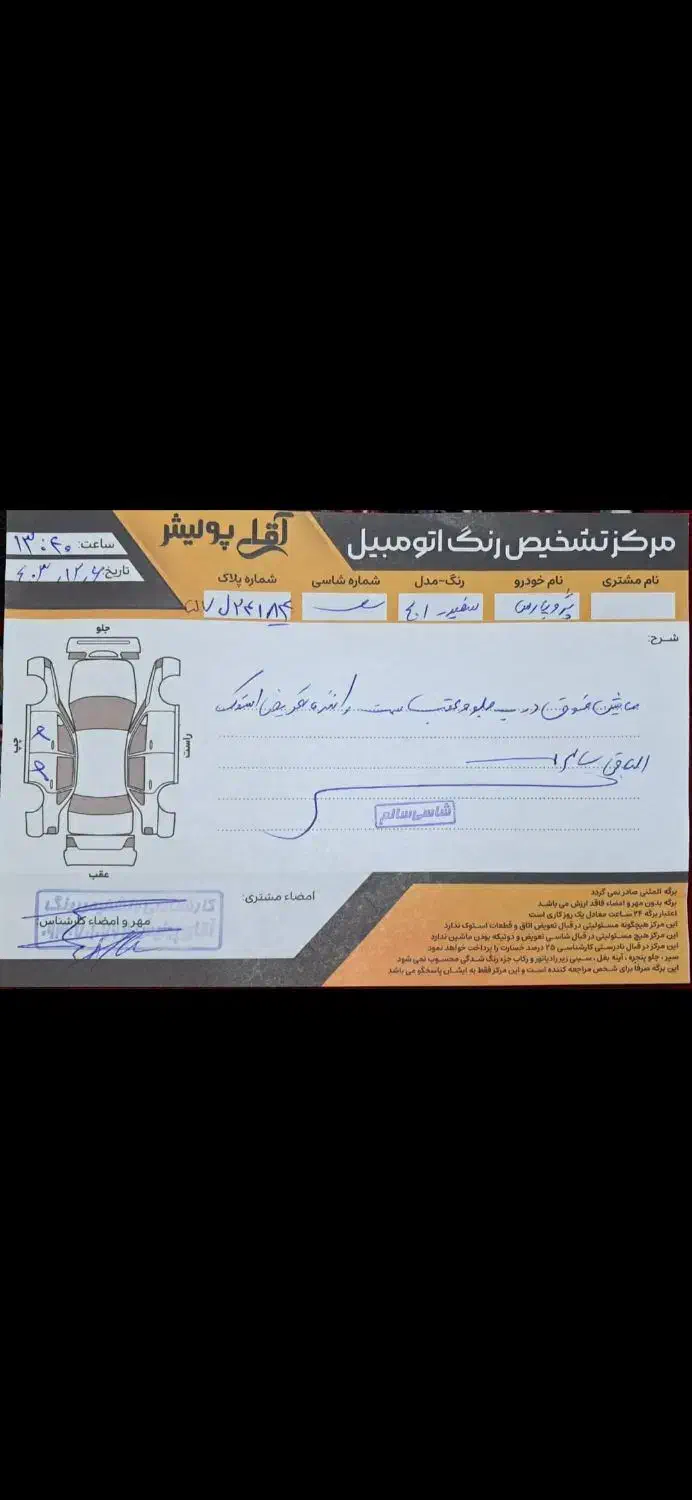 آقای پولیشر
مرکز تشخیص رنگ اتومبیل
ساعت: ۱۳:۴۰
تاریخ: ۴۰۳/۱۲/۶
نام مشتری
نام خودرو
پژو پارس
رنگ-مدل
سفید
شماره شاسی
شماره پلاک
شرح:
ماشین فوق درب جلو و عقب سمت راننده تعویض استوک
الباقی سالم
شاسی سالم
جلو
راست
چپ
عقب
امضاء مشتری:
مهر و امضاء کارشناس:
برگه المثنی صادر نمی گردد
برگه بدون مهر و امضاء فاقد ارزش می باشد
اعتبار برگه ۲۴ ساعت معادل یک روز کاری است
این مرکز هیچگونه مسئولیتی در قبال تعویض اتاق و قطعات استوک ندارد
این مرکز هیچ مسئولیتی در قبال شاسی تعویض و دوتیکه بودن ماشین ندارد
این مرکز در قبال نادرستی کارشناسی ۲۵ درصد خسارت را پرداخت خواهد نمود
سپر ، جلو پنجره ، آینه بغل ، سینی زیر رادیاتور و رکاب جزء رنگ شدگی محسوب نمی شود
این برگه صرفا برای شخص مراجعه کننده است و این مرکز فقط به ایشان پاسخگو می باشد